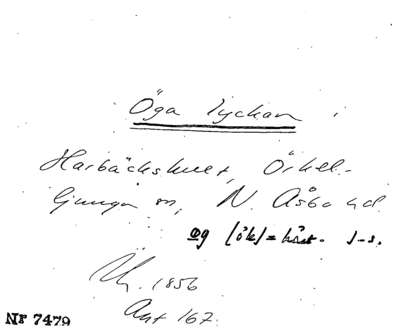 Öga lyckan
Harbäckshult, Örkel-
ljunga sn, N. Åsbo hd.
Øg (ök) = häst. J-s.
Uh. 1856
Akt 167.
Nr 7479